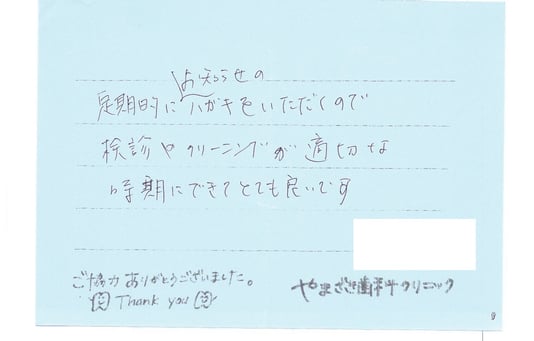 お知らせの
定期的にハガキをいただくので
検診やクリーニングが適切な
時期にできてとても良いです
ご協力ありがとうございました。
Thank you
やまざき歯科クリニック
9